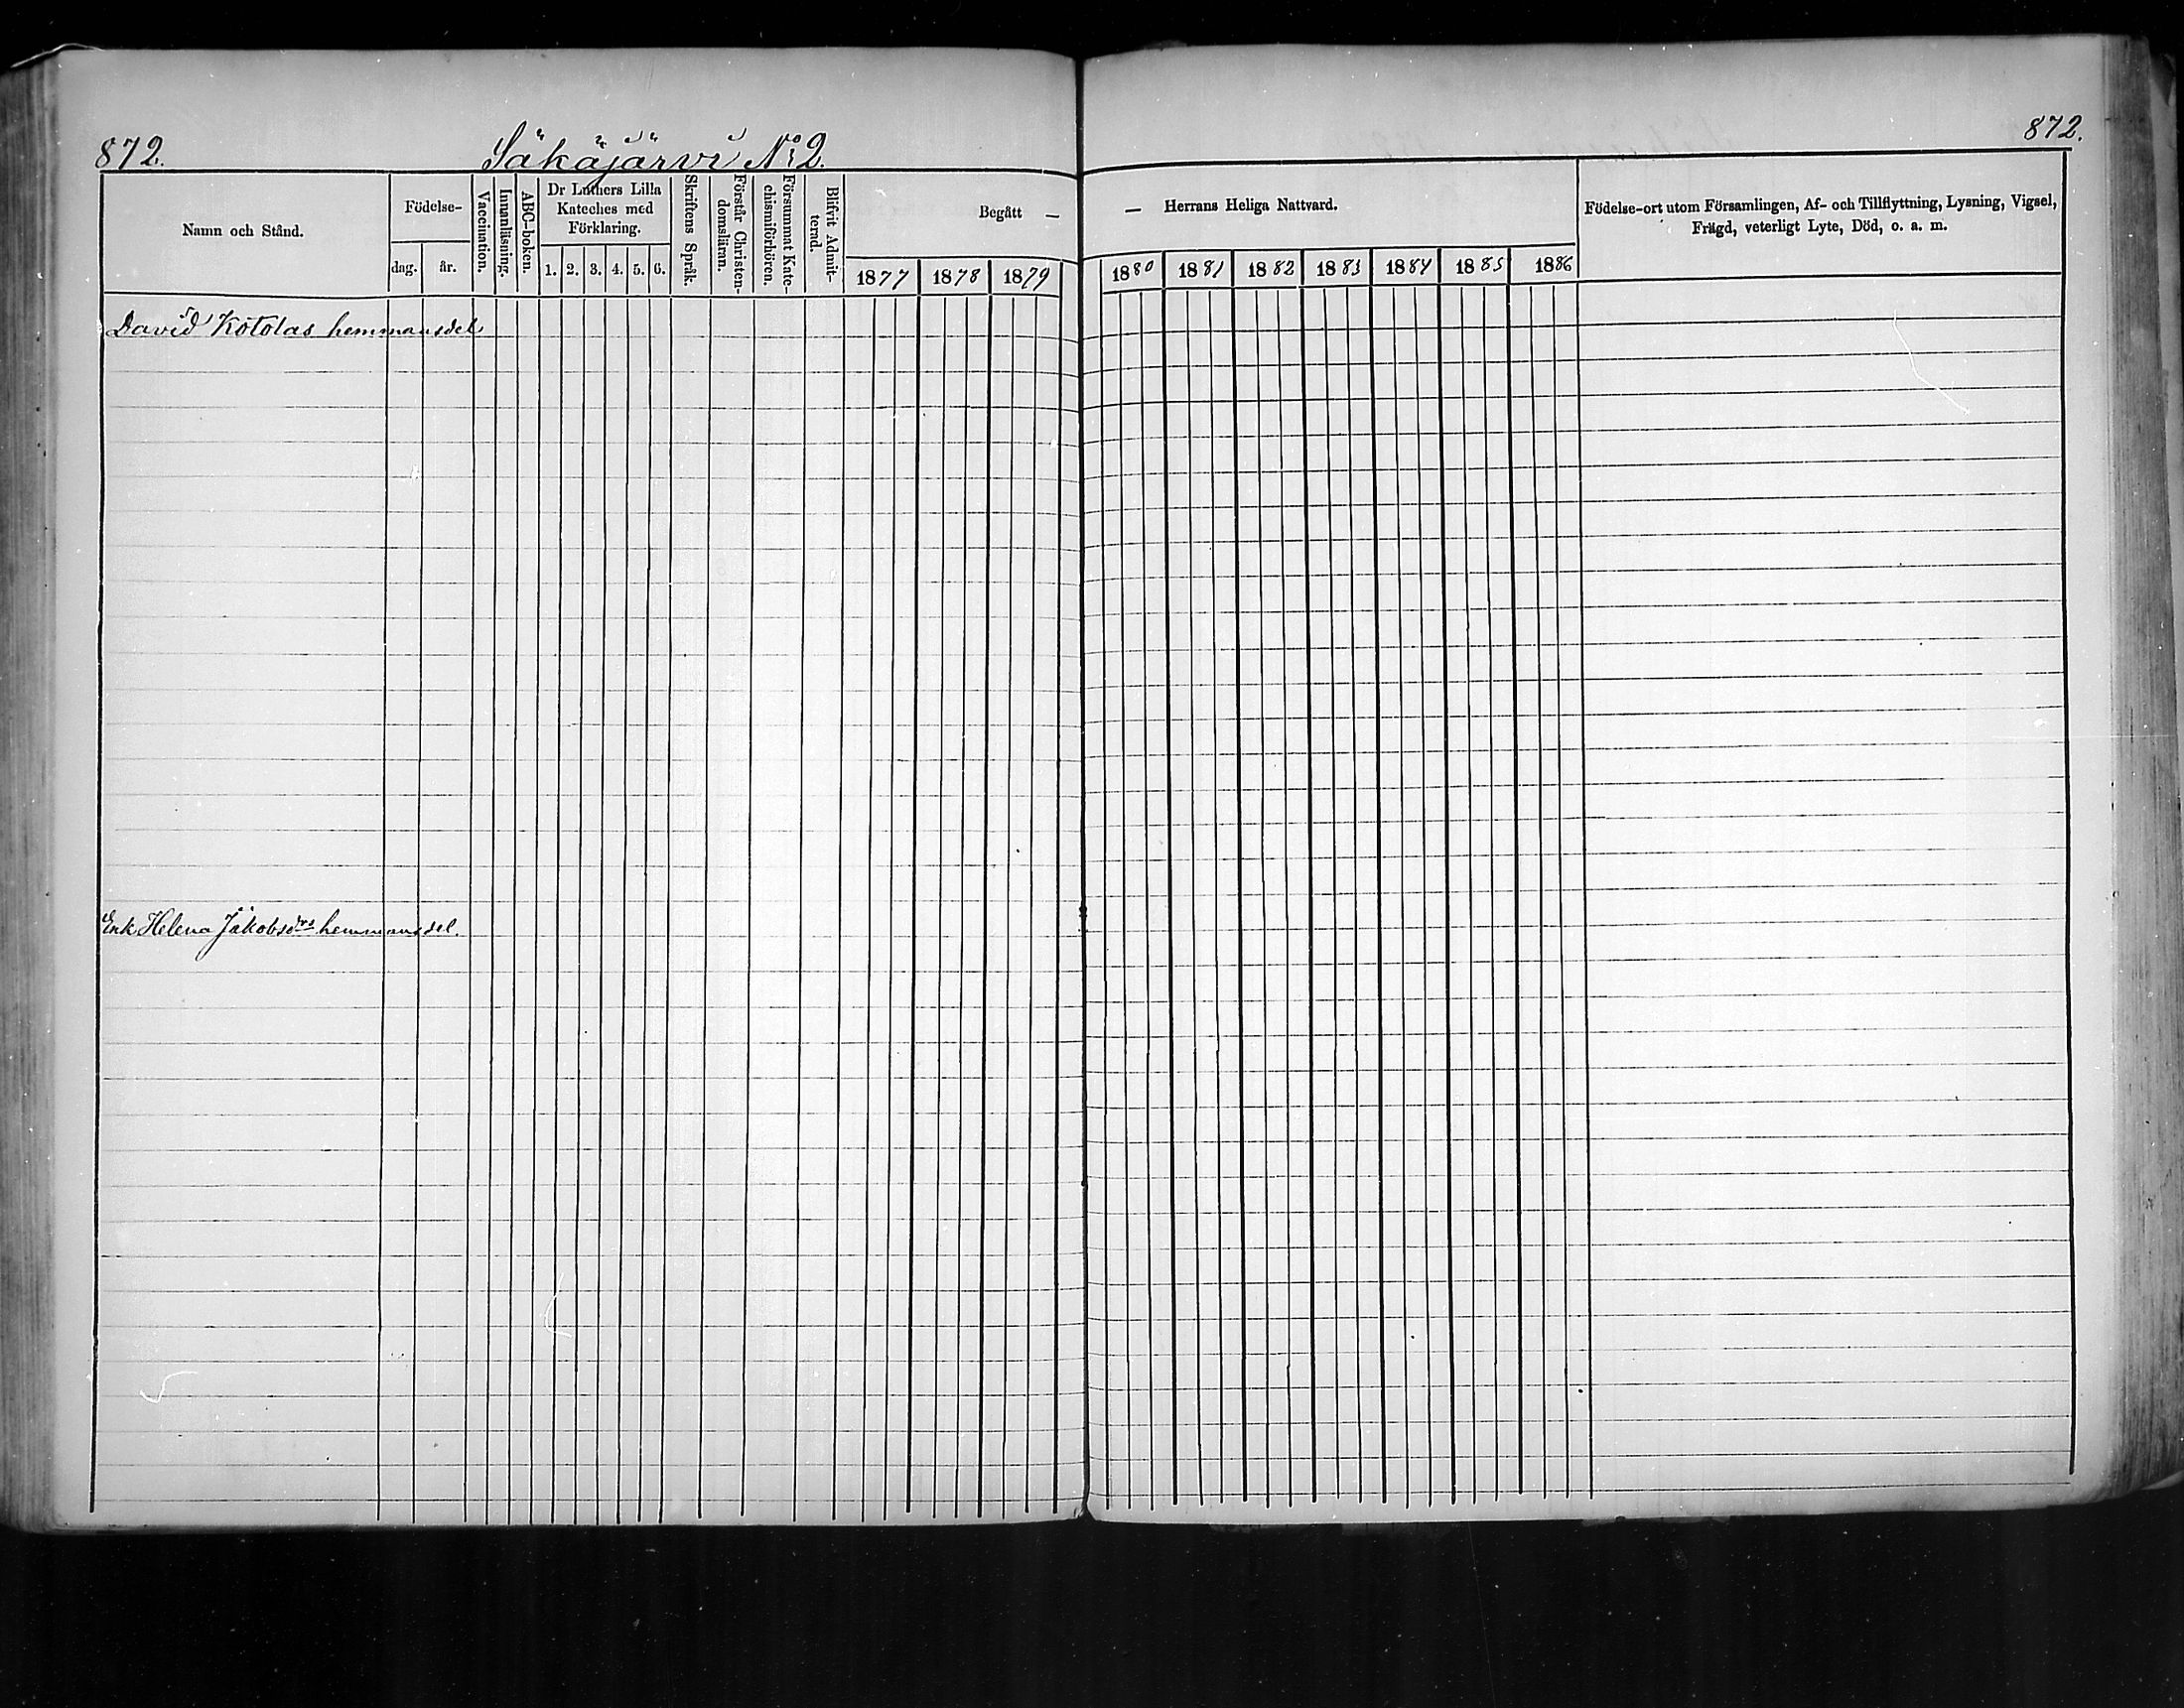 872.
Säkäjärvi No 2.
872.
Namn och Stånd.
Födelse-
dag.
år.
Vaccination.
Innanläsning.
ABC-boken.
Dr Luthers Lilla
Kateches med
Förklaring.
1. 2. 3. 4. 5. 6.
Skriftens Språk.
Förstår Christen-
domsläran.
Försummat Kate-
chismiförhören.
Blifvit Admit-
terad.
Begått —
1877 1878 1879
— Herrans Heliga Nattvard.
1880 1881 1882 1883 1884 1885 1886
Födelse-ort utom Församlingen, Af- och Tillflyttning, Lysning, Vigsel,
Frägd, veterligt Lyte, Död, o. a. m.
David Kotolas hemmansdel
Enk Helena Jakobsdrs hemmansdel.